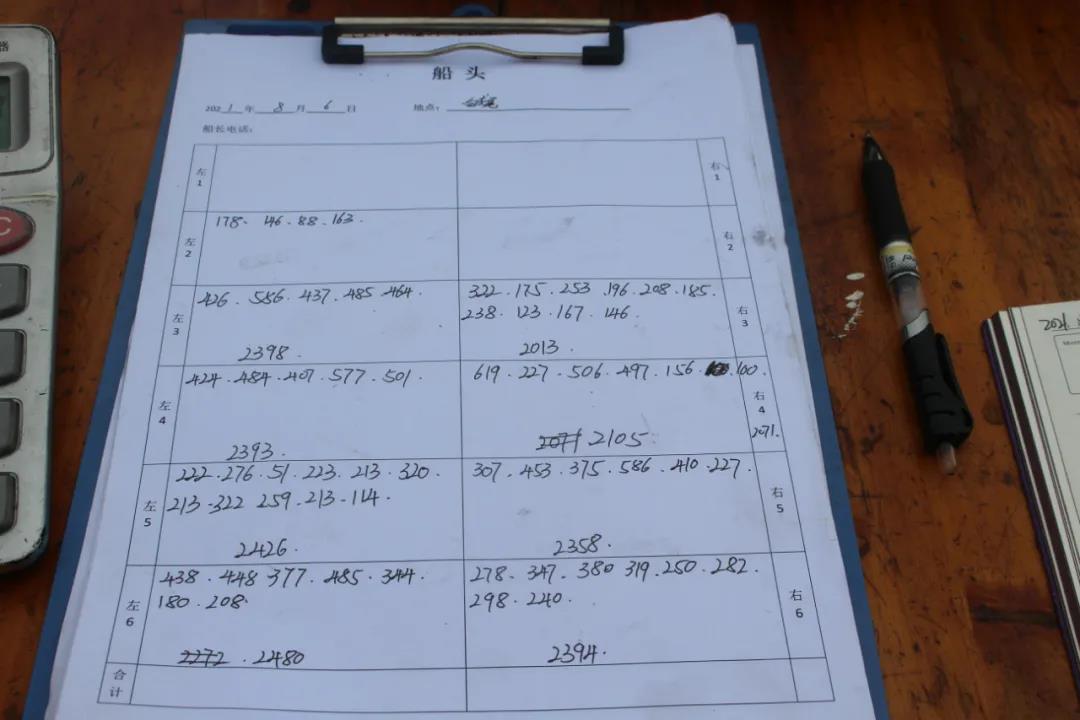 船头
2021年 8月 6日 地点:
船长电话:
左1 右1
左2 178. 146. 88. 163. 右2
左3 426. 586. 437. 485. 464. 322. 175. 253. 196. 208. 185. 右3
238. 123. 167. 146.
2398. 2013.
左4 424. 484. 407. 577. 501. 619. 227. 506. 497. 156. 100. 右4
2393. 2071 2105. 2071.
左5 222. 276. 51. 223. 213. 320. 307. 453. 375. 586. 410. 227. 右5
213-322 259. 213-114.
2426. 2358.
左6 438. 448 377. 485. 344. 278. 347. 380 319. 250. 282. 右6
180. 208. 298. 240.
2272. 2480 2394.
合计
2021.
C
器